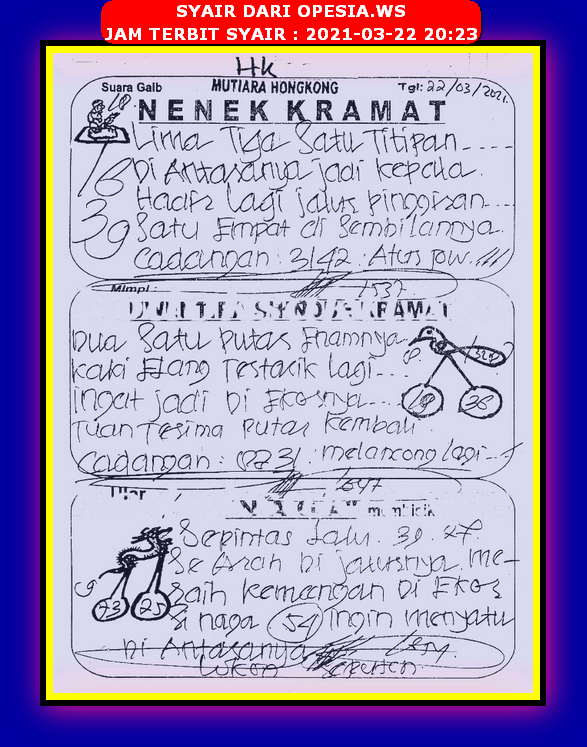 SYAIR DARI OPESIA.WS
JAM TERBIT SYAIR : 2021-03-22 20:23
HK
Suara Gaib
MUTIARA HONGKONG
Tgl: 22/03/2021.
NENEK KRAMAT
Lima Tiga Satu Titipan----
Di Antaranya jadi kepala.
Hadir lagi jalur pinggiran...
39
Satu Empat di Sembilannya.
Cadangan: 3142
Mimpi:
1537
Dua Satu putar Enamnya
Kaki Elang Tertarik lagi...
ingat jadi Di Ekornya...
19 38
Tuan Terima putar Kembali
Cadangan: melancong lagi
1647
Sepintas Lalu. 39. 47.
Se Arah Di jalurnya. me-
raih kemenangan Di Ekor
73 25
naga 54 ingin menyatu
Di Antaranya